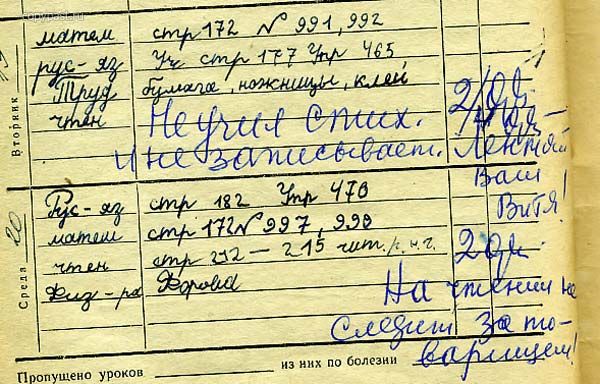 copypast.ru
Вторник
матем стр 172 № 991, 992
рус-яз Уч стр 177 Упр 465
Труд бумага, ножницы, клей
чтен Не учил стих. 2/
и не записывает. Лентяй
Ваш
Витя!
Среда 20
Рус-яз стр 182 Упр 478
матем стр 172 № 997, 998
чтен стр 212 – 215 чит.
Физ-ра Форма
На чтении не
следит за то-
варищем!
Пропущено уроков из них по болезни